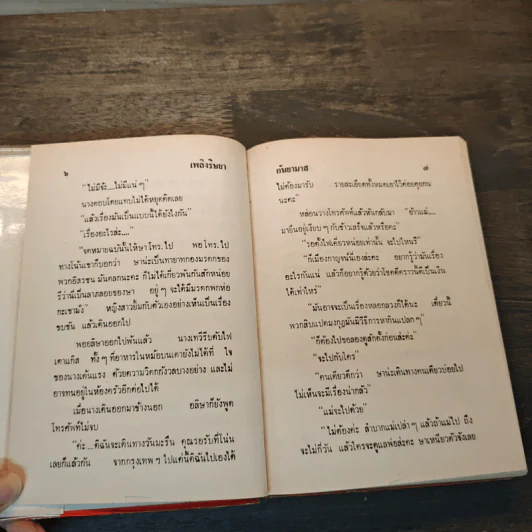 ๖ เพลิงริษยา
"ไม่มีจ้ะ....ไม่มีแน่ ๆ"
นางตอบโดยแทบไม่ได้หยุดคิดเลย
"แล้วเรื่องมันเป็นแบบนี้ได้ยังไงกัน"
"เรื่องอะไรล่ะ...."
"จดหมายฉบับนี้ให้ษาโทร.ไป พอโทร.ไป
ทางโน้นเขาก็บอกว่า ษาน่ะเป็นทายาทกองมรดกของ
พวกอิสรชน มันตลกนะคะ ก็ไม่ได้เกี่ยวพันกันสักหน่อย
รึว่านี่เป็นลาภลอยของษา อยู่ ๆ จะได้มีมรดกตกห่อ
กะเขามั่ง" หญิงสาวยิ้มกับตัวเองอย่างเห็นเป็นเรื่อง
ขบขัน แล้วเดินออกไป
พออลิษาออกไปพ้นแล้ว นางเทวีรีบดับไฟ
เตาแก๊ส ทั้ง ๆ ที่อาหารในหม้อบนเตายังไม่ได้ที่ ใจ
ของนางเต้นแรง ด้วยความวิตกกังวลบางอย่าง และไม่
อาจทนอยู่ในห้องครัวอีกต่อไปได้
เมื่อนางเดินออกมาข้างนอก อลิษาก็ยังพูด
โทรศัพท์ไม่จบ
"ค่ะ....ดิฉันจะเดินทางวันมะรืน คุณรอรับที่โน่น
เลยก็แล้วกัน จากกรุงเทพ ๆ ไปแค่นี้ดิฉันไปเองได้
กันยามาส ๗
ไม่ต้องมารับ รายละเอียดทั้งหมดเอาไว้ค่อยคุยกัน
นะคะ"
หล่อนวางโทรศัพท์แล้วหันกลับมา "อ้าวแม่....
มายืนอยู่เงียบ ๆ กับข้าวเสร็จแล้วหรือคะ"
"รอตั้งไฟเดี๋ยวหน่อยเท่านั้น จะไปไหนรึ"
"ก็เมืองกาญจน์นี่เองล่ะคะ อยากรู้ว่ามันเรื่อง
อะไรกันแน่ แล้วก็อยากรู้ด้วยว่าโชคดีคราวนี้ตีเป็นเงิน
ได้เท่าไหร่"
"มันอาจจะเป็นเรื่องหลอกลวงก็ได้นะ เดี๋ยวนี้
พวกสิบแปดมงกุฎมันมีวิธีการหากินแปลก ๆ"
"ก็ต้องไปขอลองดูสักตั้งก่อนล่ะค่ะ"
"จะไปกับใคร"
"คนเดียวดีกว่า ษาน่ะเดินทางคนเดียวบ่อยไป
ไม่เห็นจะมีเรื่องน่ากลัว"
"แม่จะไปด้วย"
"ไม่ต้องค่ะ ลำบากแม่เปล่า ๆ แล้วถ้าแม่ไป ถึง
จะไม่กี่วัน แล้วใครจะดูแลพ่อล่ะคะ ษาเหนียวตัวจังเลย